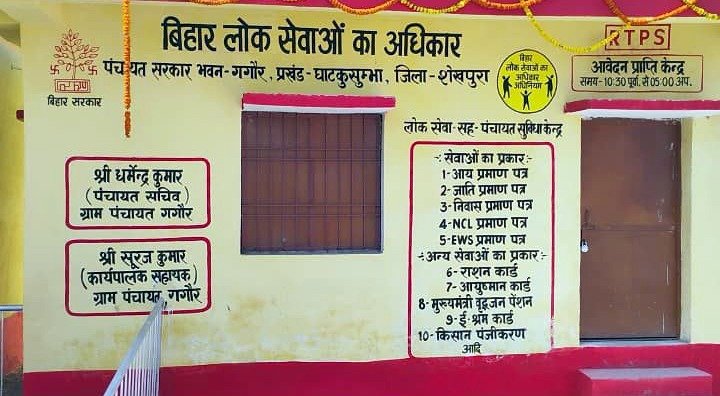 बिहार लोक सेवाओं का अधिकार
पंचायत सरकार भवन-गगौर, प्रखंड-घाटकुसुम्भा, जिला-शेखपुरा
बिहार सरकार
बिहार
लोक सेवाओं का
अधिकार
अधिनियम
RTPS
आवेदन प्राप्ति केन्द्र
समय-10:30 पूर्वा. से 05:00 अप.
लोक सेवा-सह-पंचायत सुविधा केन्द्र
श्री धर्मेन्द्र कुमार
(पंचायत सचिव)
ग्राम पंचायत गगौर
श्री सूरज कुमार
(कार्यपालक सहायक)
ग्राम पंचायत गगौर
-:सेवाओं का प्रकार:-
1-आय प्रमाण पत्र
2-जाति प्रमाण पत्र
3-निवास प्रमाण पत्र
4-NCL प्रमाण पत्र
5-EWS प्रमाण पत्र
-:अन्य सेवाओं का प्रकार:-
6-राशन कार्ड
7-आयुष्मान कार्ड
8-मुख्यमंत्री वृद्धजन पेंशन
9-ई-श्रम कार्ड
10-किसान पंजीकरण
आदि